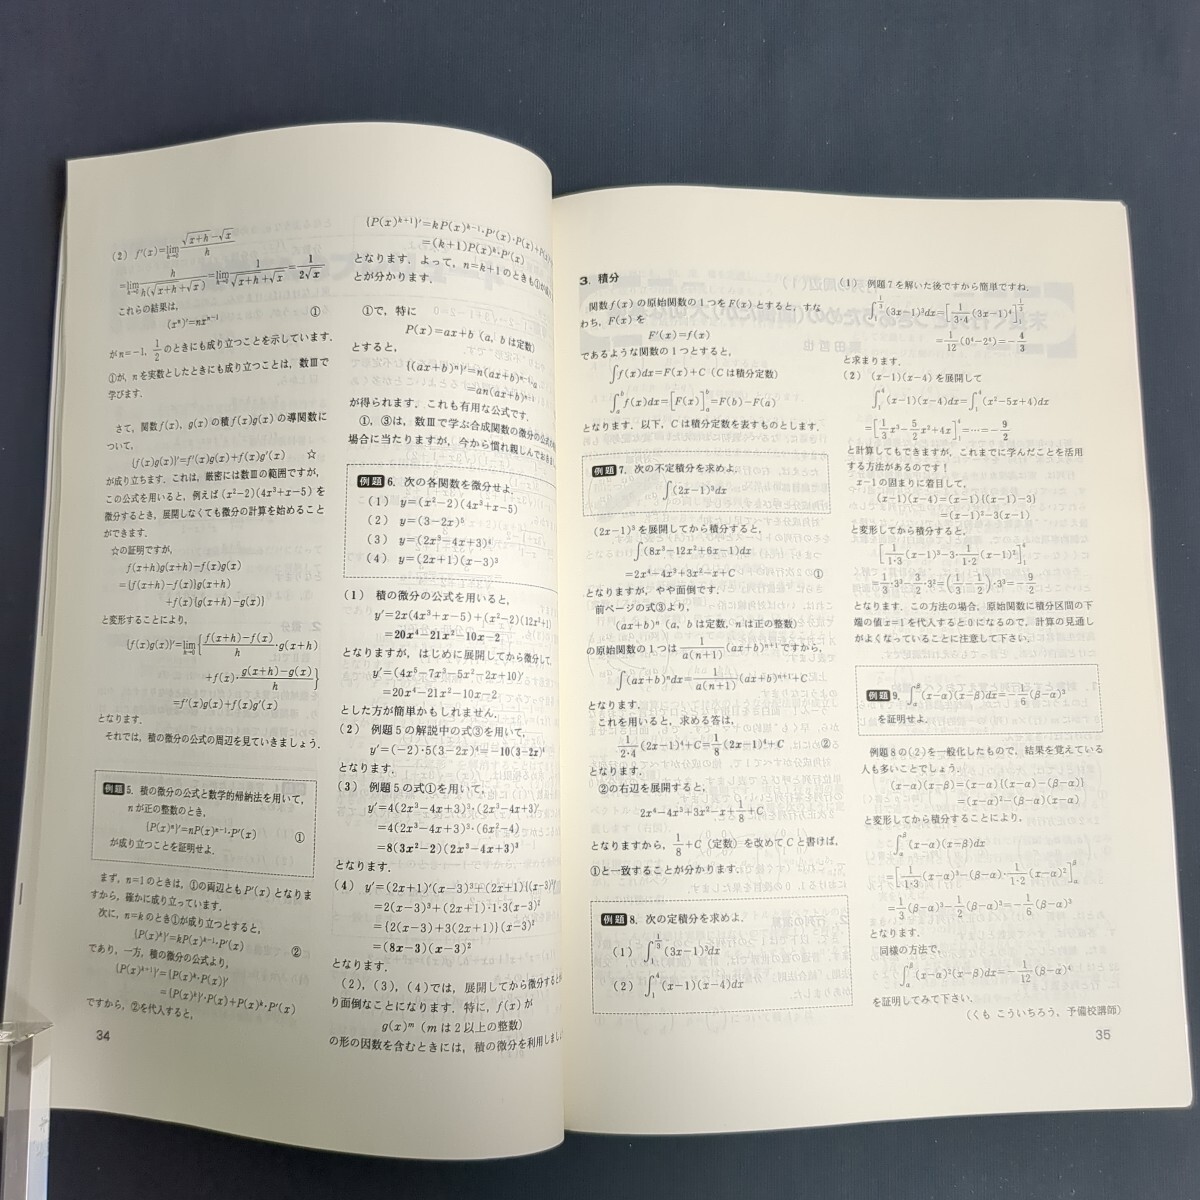 (2) f'(x)=lim_{h→0} (√(x+h)−√x)/h
=lim_{h→0} h/(h(√(x+h)+√x))=lim_{h→0} 1/(√(x+h)+√x)=1/(2√x)
これらの結果は,
(xⁿ)'=nxⁿ⁻¹ ①
がn=−1, 1/2 のときにも成り立つことを示しています.
①が, nを実数としたときにも成り立つことは, 数Ⅲで
学びます.
さて, 関数f(x), g(x)の積f(x)g(x)の導関数に
ついて,
{f(x)g(x)}'=f'(x)g(x)+f(x)g'(x) ☆
が成り立ちます. これは, 厳密には数Ⅲの範囲ですが,
この公式を用いると, 例えば(x²−2)(4x³+x−5)を
微分するとき, 展開しなくても微分の計算を始めること
ができます.
☆の証明ですが,
f(x+h)g(x+h)−f(x)g(x)
={f(x+h)−f(x)}g(x+h)
+f(x){g(x+h)−g(x)}
と変形することにより,
{f(x)g(x)}'=lim_{h→0}{(f(x+h)−f(x))/h・g(x+h)
+f(x)・(g(x+h)−g(x))/h}
=f'(x)g(x)+f(x)g'(x)
となります.
それでは, 積の微分の公式の周辺を見ていきましょう.
例題 5. 積の微分の公式と数学的帰納法を用いて,
nが正の整数のとき,
{P(x)ⁿ}'=nP(x)ⁿ⁻¹・P'(x) ①
が成り立つことを証明せよ.
まず, n=1のときは, ①の両辺ともP'(x)となりま
すから, 確かに成り立っています.
次に, n=kのとき①が成り立つとすると,
{P(x)ᵏ}'=kP(x)ᵏ⁻¹・P'(x) ②
であり, 一方, 積の微分の公式より,
{P(x)ᵏ⁺¹}'={P(x)ᵏ・P(x)}'
={P(x)ᵏ}'・P(x)+P(x)ᵏ・P'(x)
ですから, ②を代入すると,
34
{P(x)ᵏ⁺¹}'=kP(x)ᵏ⁻¹・P'(x)・P(x)+P(x)
=(k+1)P(x)ᵏ・P'(x)
となります. よって, n=k+1のときも①が
とが分かります.
①で, 特に
P(x)=ax+b (a, bは定数)
とすると,
{(ax+b)ⁿ}'=n(ax+b)ⁿ⁻¹・a
=an(ax+b)ⁿ⁻¹
が得られます. これも有用な公式です.
①, ③は, 数Ⅲで学ぶ合成関数の微分の公式の
場合に当たりますが, 今から慣れ親しんでおき
例題 6. 次の各関数を微分せよ.
(1) y=(x²−2)(4x³+x−5)
(2) y=(3−2x)⁵
(3) y=(2x³−4x+3)⁴
(4) y=(2x+1)(x−3)³
(1) 積の微分の公式を用いると,
y'=2x(4x³+x−5)+(x²−2)(12x²+1)
=20x⁴−21x²−10x−2
となりますが, はじめに展開してから微分して,
y'=(4x⁵−7x³−5x²−2x+10)'
=20x⁴−21x²−10x−2
とした方が簡単かもしれません.
(2) 例題5の解説中の式③を用いて,
y'=(−2)・5(3−2x)⁴=−10(3−2x)⁴
となります.
(3) 例題5の式①を用いて,
y'=4(2x³−4x+3)³・(2x³−4x+3)'
=4(2x³−4x+3)³・(6x²−4)
=8(3x²−2)(2x³−4x+3)³
となります.
(4) y'=(2x+1)'(x−3)³+(2x+1){(x−3)³}'
=2(x−3)³+(2x+1)・1・3(x−3)²
={2(x−3)+3(2x+1)}(x−3)²
=(8x−3)(x−3)²
となります.
(2), (3), (4)では, 展開してから微分すると
り面倒なことになります. 特に, f(x)が
g(x)ᵐ (mは2以上の整数)
の形の因数を含むときには, 積の微分を利用しまし
3. 積分
関数f(x)の原始関数の1つをF(x)とすると, すな
わち, F(x)を
F'(x)=f(x)
であるような関数の1つとすると,
∫f(x)dx=F(x)+C (Cは積分定数)
∫ₐᵇf(x)dx=[F(x)]ₐᵇ=F(b)−F(a)
となります. 以下, Cは積分定数を表すものとします.
例題 7. 次の不定積分を求めよ.
∫(2x−1)³dx
(2x−1)³を展開してから積分すると,
∫(8x³−12x²+6x−1)dx
=2x⁴−4x³+3x²−x+C ①
となりますが, やや面倒です.
前ページの式③より,
(ax+b)ⁿ (a, bは定数, nは正の整数)
の原始関数の1つは 1/(a(n+1)) (ax+b)ⁿ⁺¹ですから,
∫(ax+b)ⁿdx=1/(a(n+1)) (ax+b)ⁿ⁺¹+C
となります.
これを用いると, 求める答は,
1/(2・4) (2x−1)⁴+C=1/8 (2x−1)⁴+C ②
となります.
②の右辺を展開すると,
2x⁴−4x³+3x²−x+1/8+C
となりますから, 1/8+C (定数)を改めてCと書けば,
①と一致することが分かります.
例題 8. 次の定積分を求めよ.
(1) ∫₁^{1/3}(3x−1)³dx
(2) ∫₁⁴(x−1)(x−4)dx
(1) 例題7を解いた後ですから簡単ですね.
∫₁^{1/3}(3x−1)³dx=[1/(3・4) (3x−1)⁴]₁^{1/3}
=1/12 (0⁴−2⁴)=−4/3
と求まります.
(2) (x−1)(x−4)を展開して
∫₁⁴(x−1)(x−4)dx=∫₁⁴(x²−5x+4)dx
=[1/3 x³−5/2 x²+4x]₁⁴=……=−9/2
と計算してもできますが, これまでに学んだことを活用
する方法があるのです!
x−1の固まりに着目して,
(x−1)(x−4)=(x−1){(x−1)−3}
=(x−1)²−3(x−1)
と変形してから積分すると,
[1/3 (x−1)³−3・1/(1・2) (x−1)²]₁⁴
=1/3・3³−3/2・3²=(1/3−1/2)・3³=−9/2
となります. この方法の場合, 原始関数に積分区間の下
端の値x=1を代入すると0になるので, 計算の見通し
がよくなっていることに注意して下さい.
例題 9. ∫_α^β(x−α)(x−β)dx=−1/6 (β−α)³
を証明せよ.
例題8の(2)を一般化したもので, 結果を覚えている
人も多いことでしょう.
(x−α)(x−β)=(x−α){(x−α)−(β−α)}
=(x−α)²−(β−α)(x−α)
と変形してから積分することにより,
∫_α^β(x−α)(x−β)dx
=[1/(1・3) (x−α)³−(β−α)・1/(1・2) (x−α)²]_α^β
=1/3 (β−α)³−1/2 (β−α)³=−1/6 (β−α)³
となります.
同様の方法で,
∫_α^β(x−α)²(x−β)dx=−1/12 (β−α)⁴
を証明してみて下さい.
(くも こういちろう, 予備校講師)
35